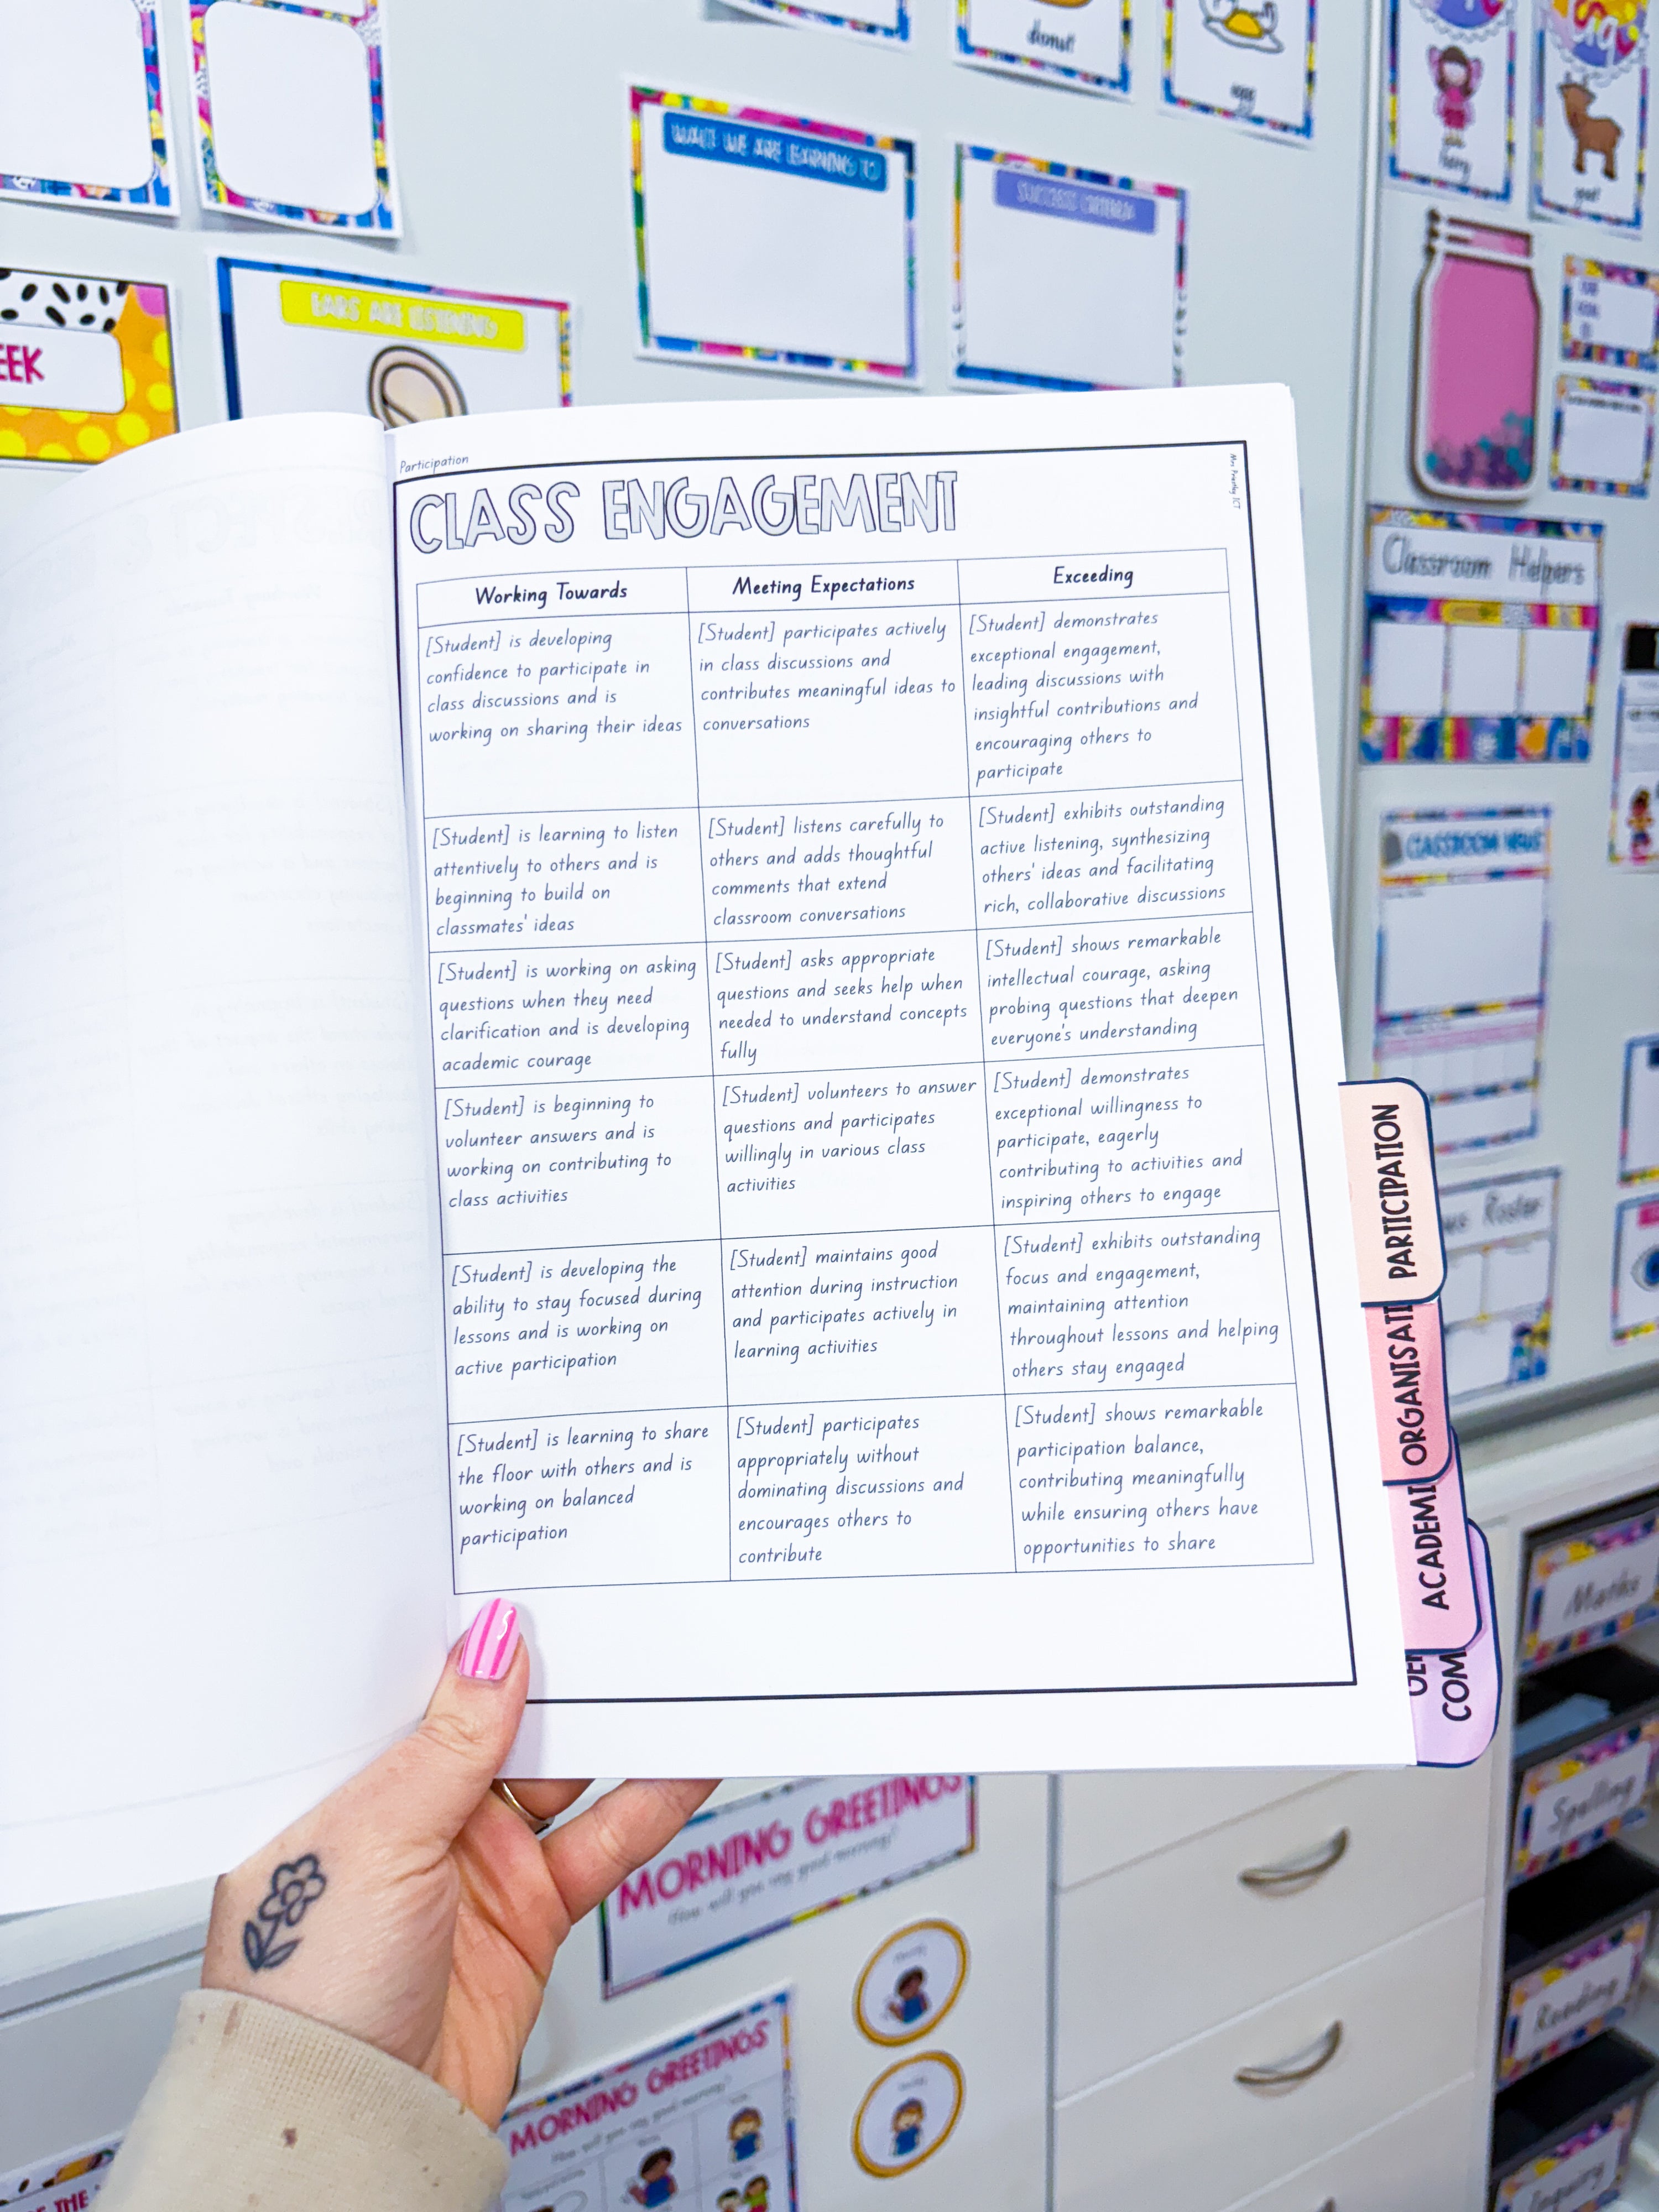 donut
egg
fairy
goat
WHAT WE ARE LEARNING TO
SUCCESS CRITERIA
EARS ARE LISTENING
EEK
Participation
Mrs Priestley ICT
CLASS ENGAGEMENT
Working Towards
[Student] is developing
confidence to participate in
class discussions and is
working on sharing their ideas
[Student] is learning to listen
attentively to others and is
beginning to build on
classmates' ideas
[Student] is working on asking
questions when they need
clarification and is developing
academic courage
[Student] is beginning to
volunteer answers and is
working on contributing to
class activities
[Student] is developing the
ability to stay focused during
lessons and is working on
active participation
[Student] is learning to share
the floor with others and is
working on balanced
participation
Meeting Expectations
[Student] participates actively
in class discussions and
contributes meaningful ideas to
conversations
[Student] listens carefully to
others and adds thoughtful
comments that extend
classroom conversations
[Student] asks appropriate
questions and seeks help when
needed to understand concepts
fully
[Student] volunteers to answer
questions and participates
willingly in various class
activities
[Student] maintains good
attention during instruction
and participates actively in
learning activities
[Student] participates
appropriately without
dominating discussions and
encourages others to
contribute
Exceeding
[Student] demonstrates
exceptional engagement,
leading discussions with
insightful contributions and
encouraging others to
participate
[Student] exhibits outstanding
active listening, synthesizing
others' ideas and facilitating
rich, collaborative discussions
[Student] shows remarkable
intellectual courage, asking
probing questions that deepen
everyone's understanding
[Student] demonstrates
exceptional willingness to
participate, eagerly
contributing to activities and
inspiring others to engage
[Student] exhibits outstanding
focus and engagement,
maintaining attention
throughout lessons and helping
others stay engaged
[Student] shows remarkable
participation balance,
contributing meaningfully
while ensuring others have
opportunities to share
PARTICIPATION
ORGANISATI
ACADEMI
GE
COM
Classroom Helpers
CLASSROOM NEWS
Roster
Maths
Spelling
Reading
Inquiry
MORNING GREETINGS
How will you say good morning?
MORNING GREETINGS
How will you say good morning?
THE